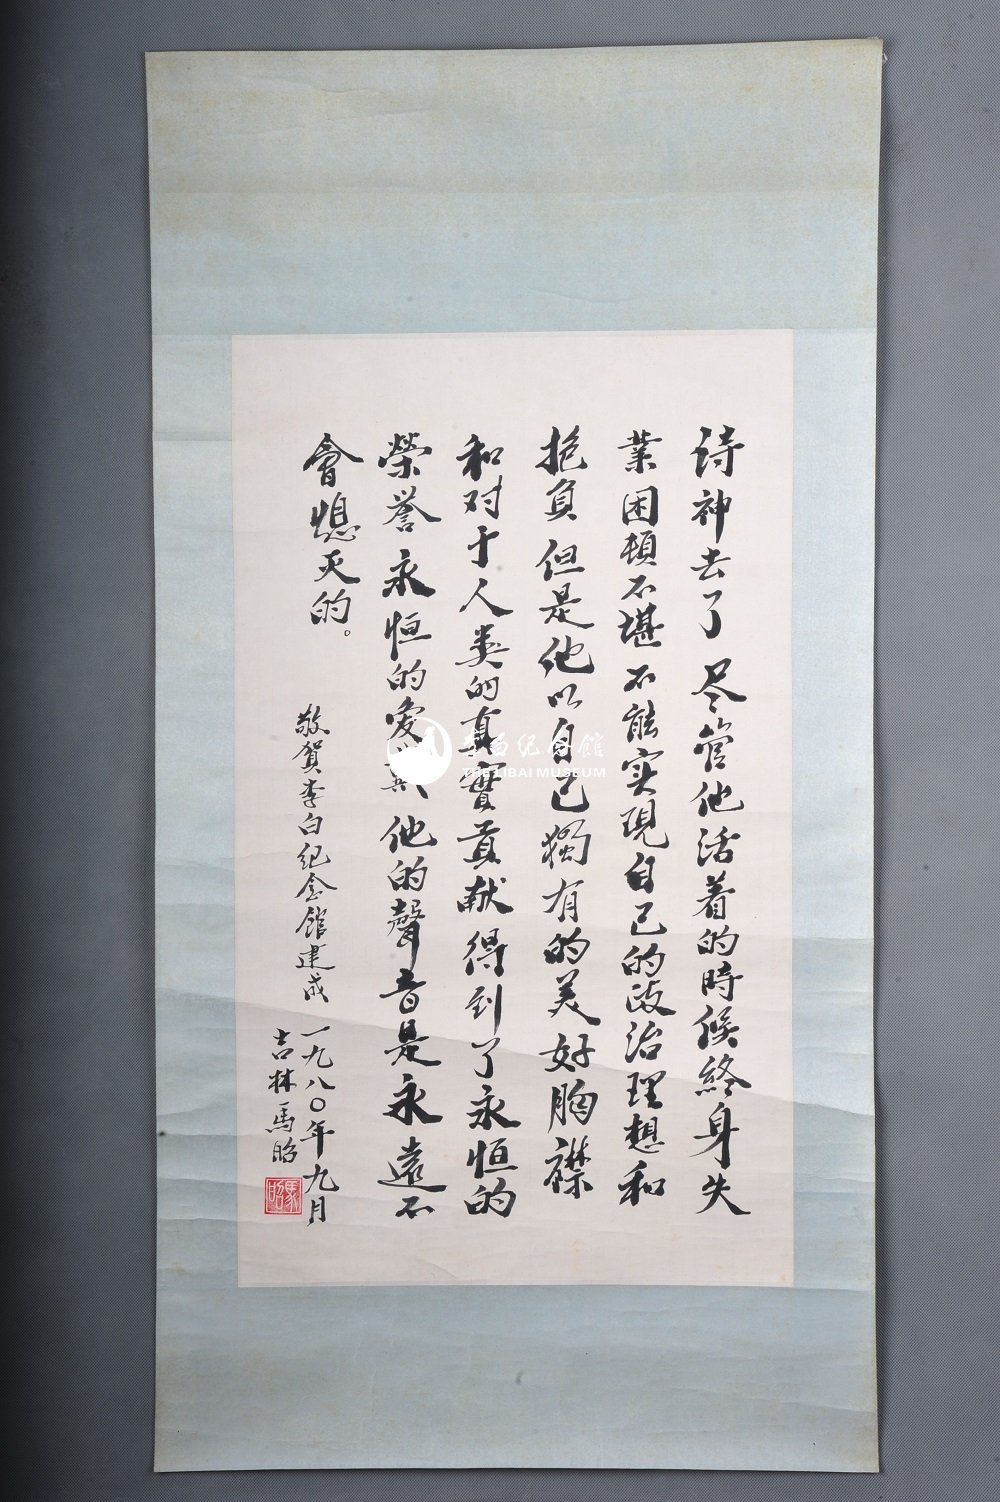 诗神去了尽管他活着的時候終身失
業困頓不堪不能实現自己的政治理想和
抱負但是他以自己獨有的美好胸襟
和对于人类的真實貢献得到了永恒的
榮誉永恒的爱戴他的聲音是永遠不
會熄灭的。
敬賀李白紀念館建成
一九八〇年九月
吉林馬昭
馬昭
李白纪念館
THE LIBAI MUSEUM